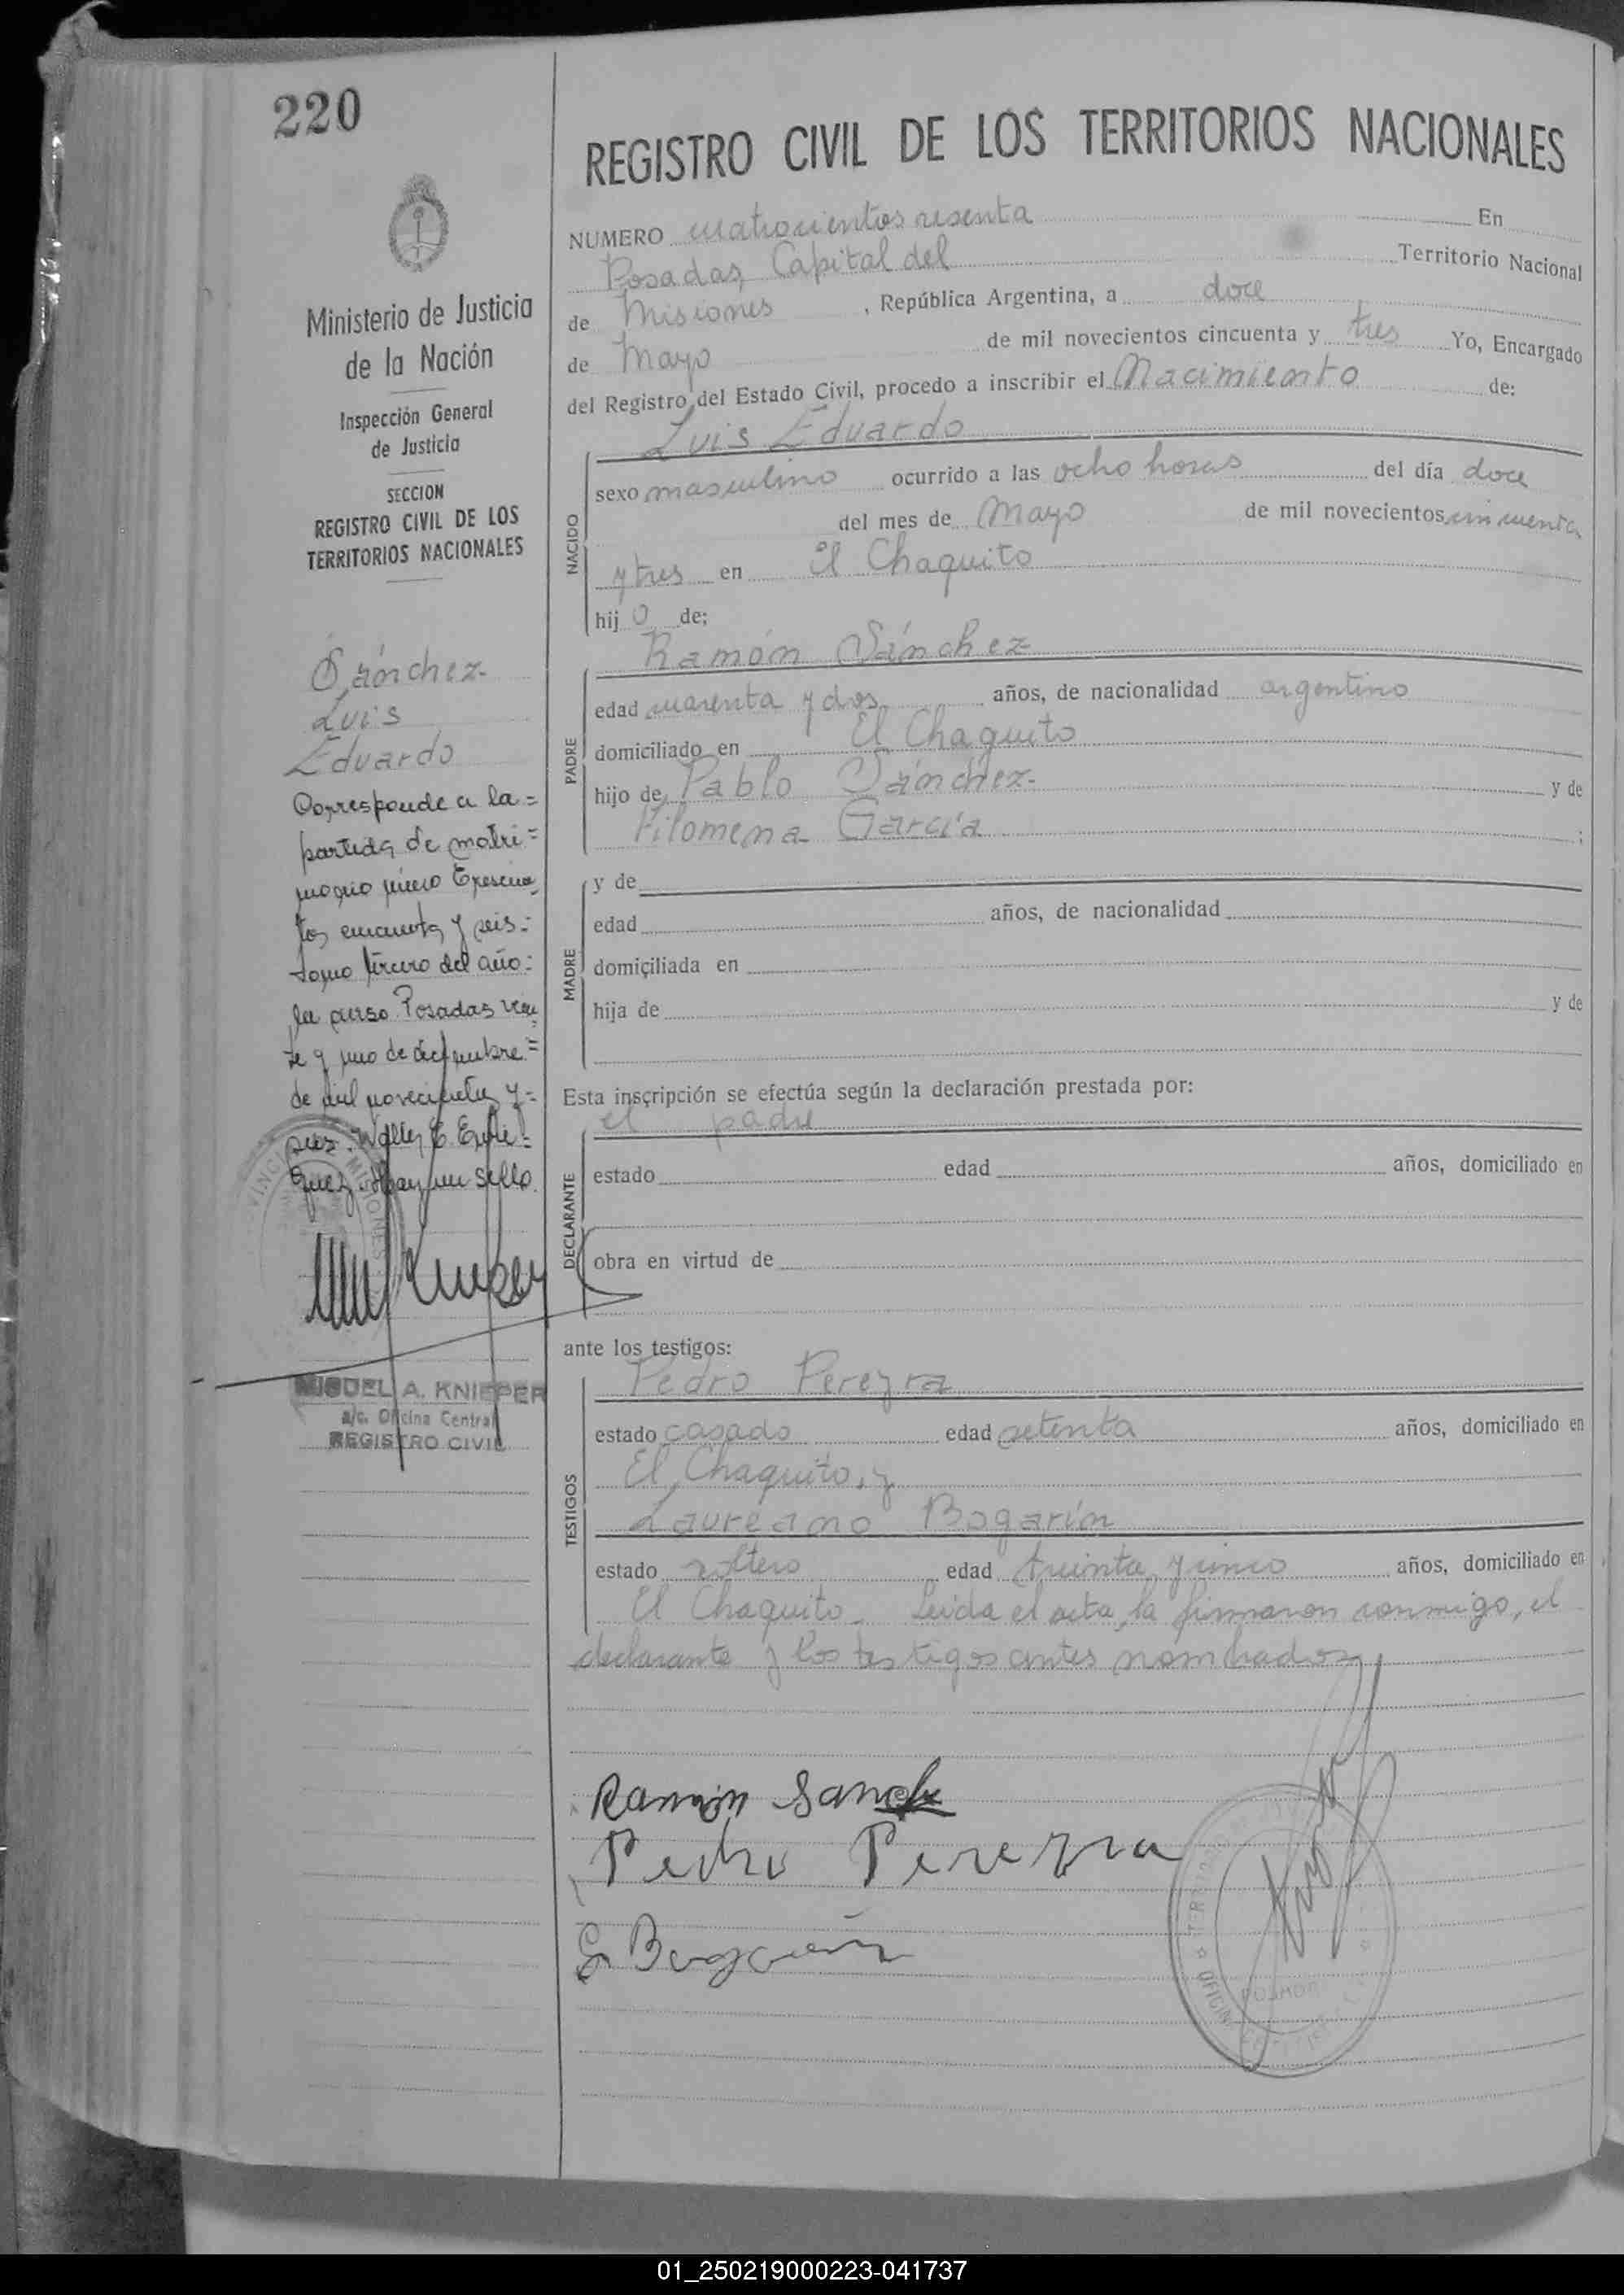 220
REGISTRO CIVIL DE LOS TERRITORIOS NACIONALES
NUMERO cuatrocientos sesenta En
Posadas, Capital del Territorio Nacional
de Misiones , República Argentina, a doce
de Mayo de mil novecientos cincuenta y tres Yo, Encargado
del Registro del Estado Civil, procedo a inscribir el Nacimiento de:
Luis Eduardo
NACIDO
sexo masculino ocurrido a las ocho horas del día doce
del mes de Mayo de mil novecientos cincuenta
y tres en El Chaquito
hij o de;
Ramón Sánchez
PADRE
edad cuarenta y dos años, de nacionalidad argentino
domiciliado en El Chaquito
hijo de Pablo Sánchez y de
Filomena García ;
MADRE
y de
edad años, de nacionalidad
domiçiliada en
hija de y de
Esta insçripción se efectúa según la declaración prestada por:
el padre
DECLARANTE
estado edad años, domiciliado en
obra en virtud de
ante los testigos:
Pedro Pereyra
TESTIGOS
estado casado edad setenta años, domiciliado en
El Chaquito, y
Laureano Bogarín
estado soltero edad treinta y cinco años, domiciliado en
El Chaquito. Leída el acta, la firmaron conmigo, el
declarante y los testigos antes nombrados
Ramón Sanche
Pedro Pereyra
Bogarín
Ministerio de Justicia
de la Nación
Inspección General
de Justicia
SECCION
REGISTRO CIVIL DE LOS
TERRITORIOS NACIONALES
Sánchez
Luis
Eduardo
Corresponde a la =
partida de matri =
monio número Trescien
tos cincuenta y seis =
tomo tercero del año =
en curso. Posadas vein
te y uno de diciembre =
de mil novecientos y =
Hay un sello
PROVINCIA MISIONES
MIGUEL A. KNIEPER
a/c. Oficina Central
REGISTRO CIVIL
01_250219000223-041737